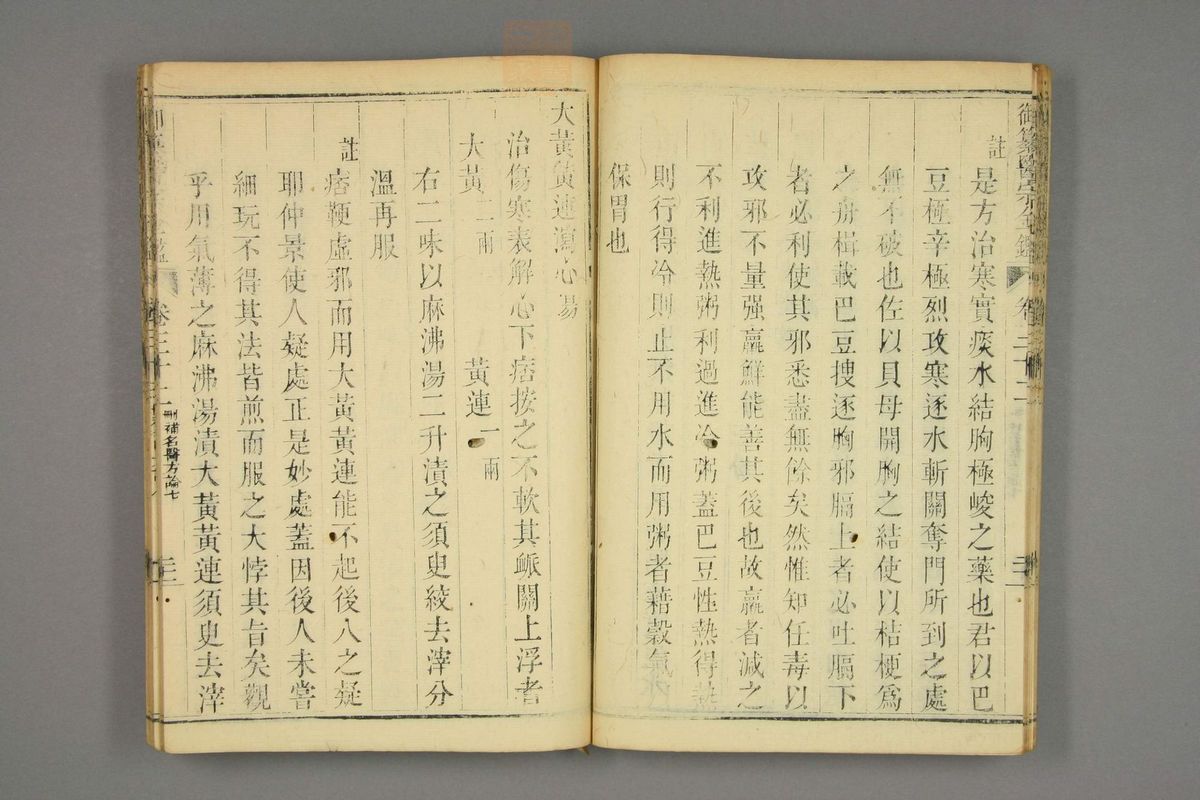 御纂醫宗金鑑 卷三十二
註 是方治寒實痰水結胸極峻之藥也君以巴
豆極辛極烈攻寒逐水斬關奪門所到之處
無不破也佐以貝母開胸之結使以桔梗爲
之舟楫載巴豆搜逐胸邪膈上者必吐膈下
者必利使其邪悉盡無餘矣然惟知任毒以
攻邪不量强羸鮮能善其後也故羸者減之
不利進熱粥利過進冷粥蓋巴豆性熱得熱
則行得冷則止不用水而用粥者藉穀氣以
保胃也
大黃黃連瀉心湯
治傷寒表解心下痞按之不軟其脈關上浮者
大黃二兩 黃連一兩
右二味以麻沸湯二升漬之須臾絞去滓分
溫再服
註 痞鞕虛邪而用大黃黃連能不起後人之疑
耶仲景使人疑處正是妙處蓋因後人未嘗
細玩不得其法皆煎而服之大悖其旨矣觀
乎用氣薄之麻沸湯漬大黃黃連須臾去滓
卷三十二 刪補名醫方論七